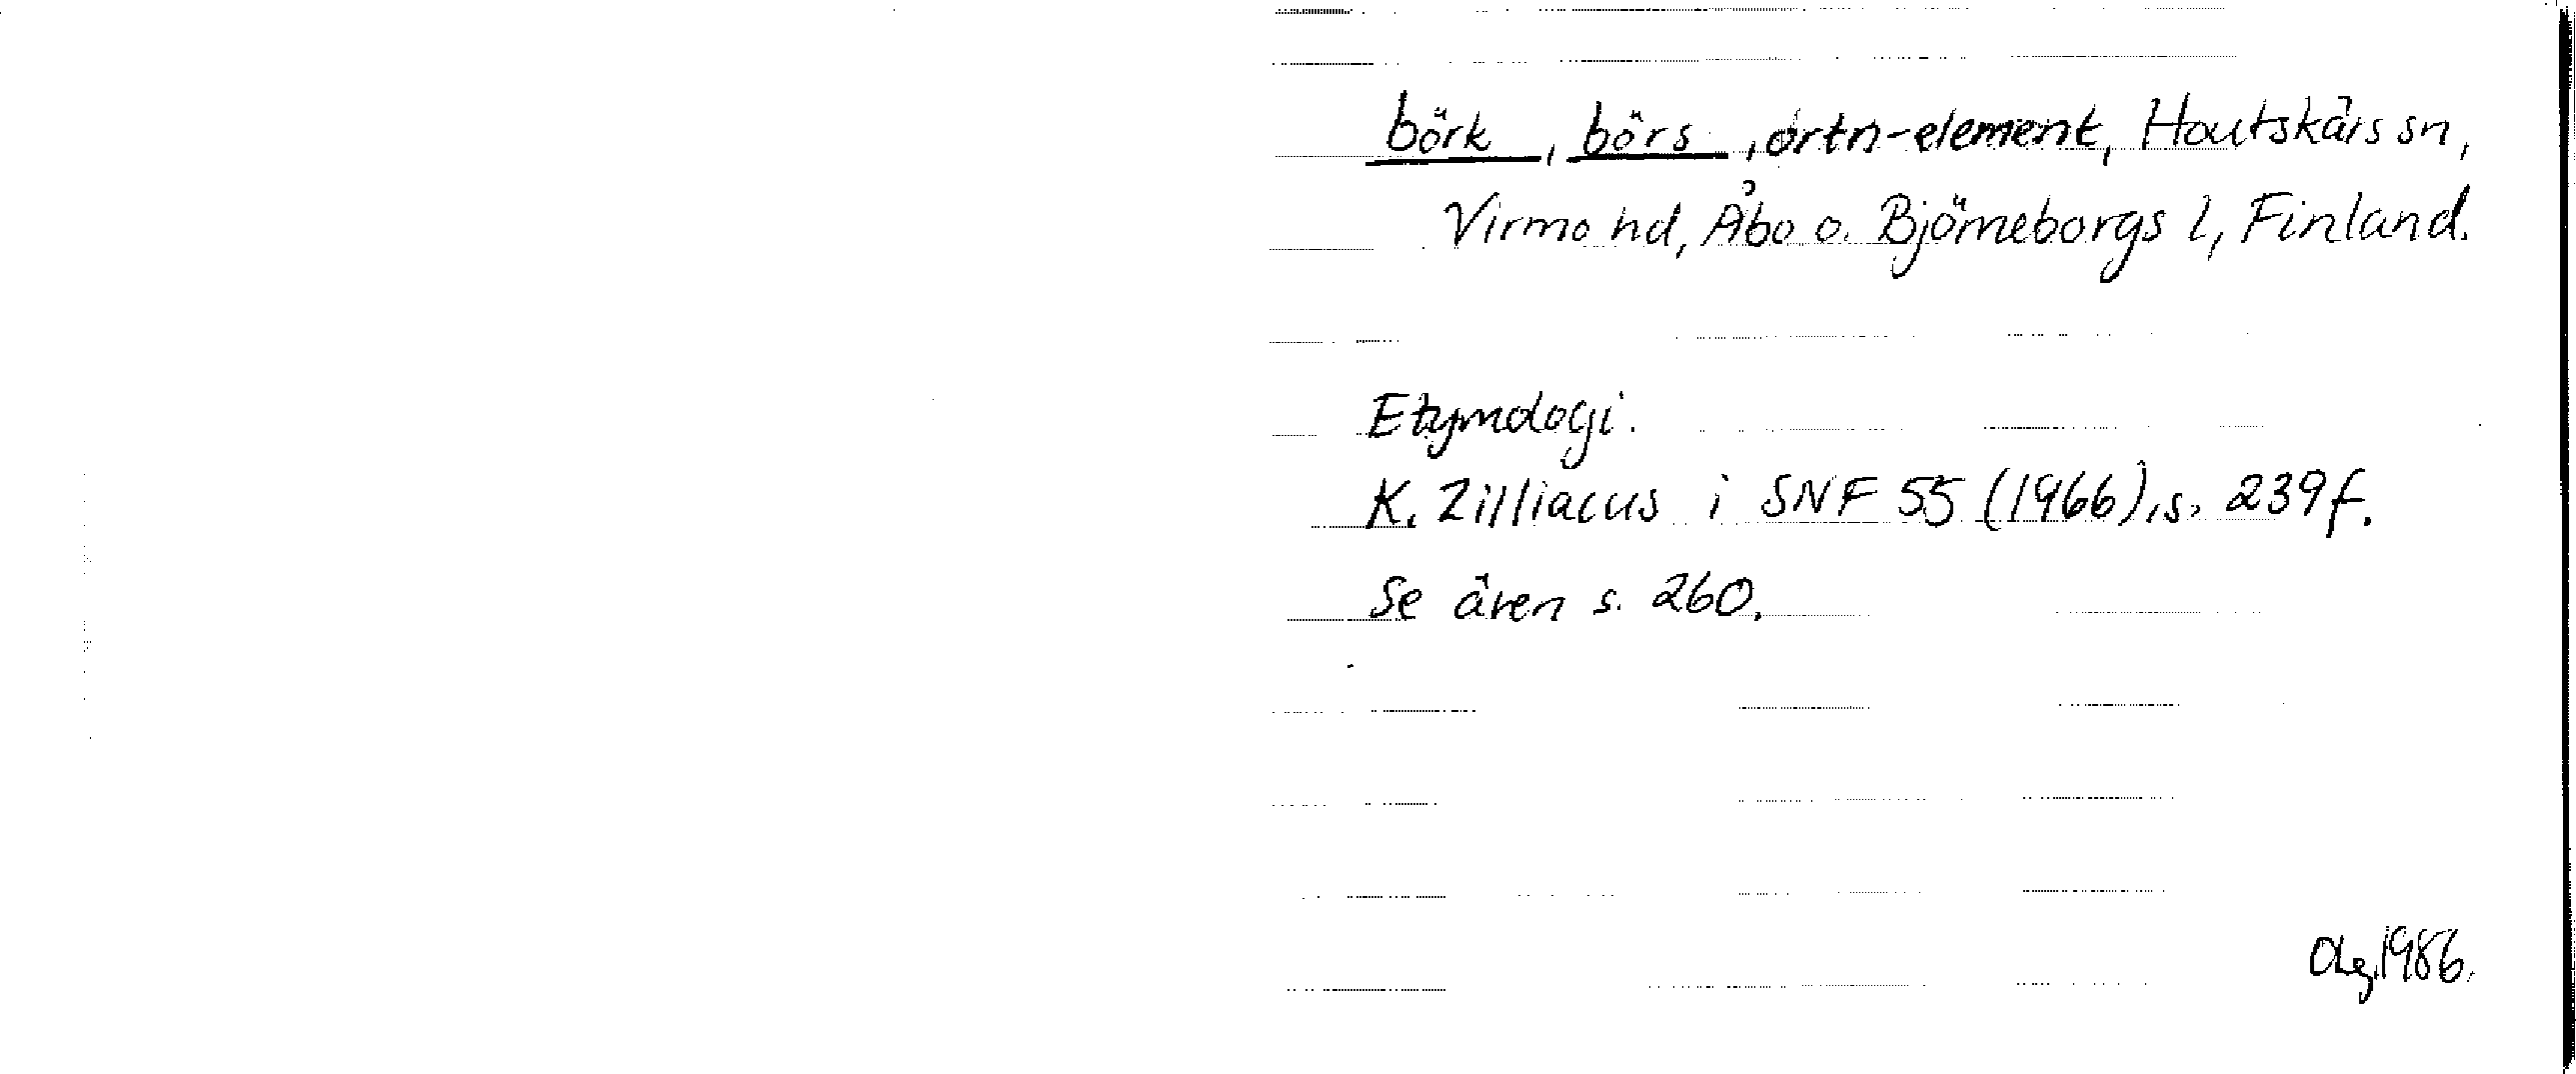 börk, börs, ortn-element, Houtskärs sn,
Virmo hd, Åbo o. Björneborgs l, Finland.
Etymologi.
K. Zilliacus i SNF 55 (1966), s. 239f.
Se även s. 260.
1986.